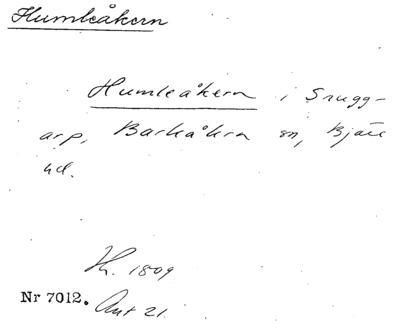 Humleåkern
Humleåkern i Snugg-
arp, Barkåkra sn, Bjäre
hd.
Kh. 1809
Nr 7012. Ant 21.